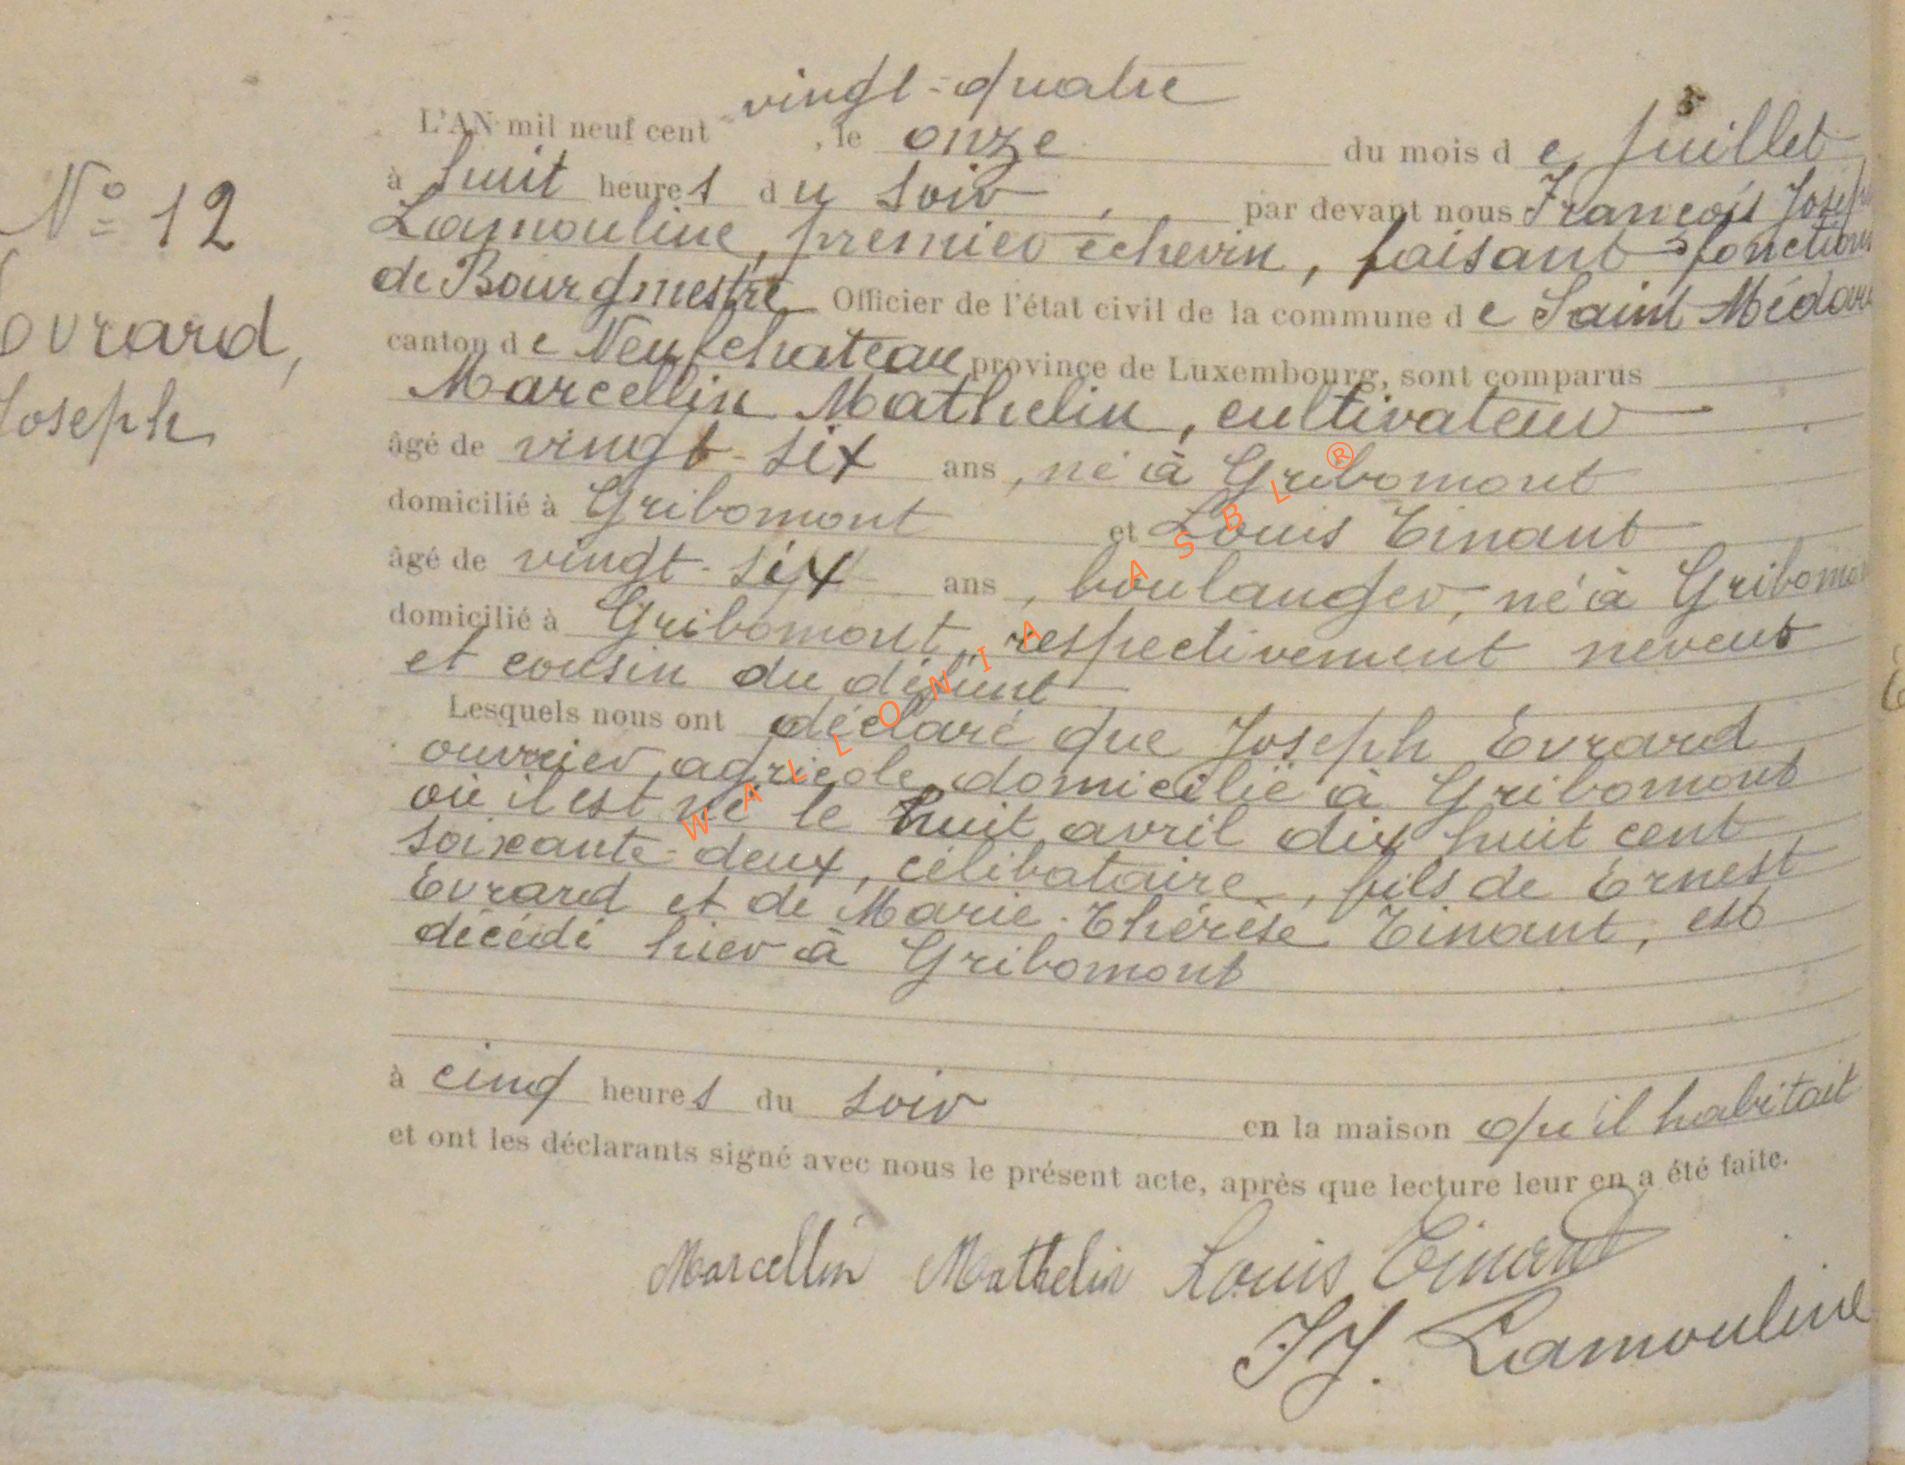 vingt-quatre
L'AN mil neuf cent , le onze du mois de Juillet
à huit heures du soir, par devant nous François Joseph
Lamouline, premier échevin, faisant fonctions
de Bourgmestre Officier de l'état civil de la commune de Saint Médard
canton de Neufchateau province de Luxembourg, sont comparus
Marcellin Mathelin, cultivateur
âgé de vingt-six ans, né à Gribomont
domicilié à Gribomont et Louis Tinant
âgé de vingt-six ans, boulanger, né à Gribomont
domicilié à Gribomont, respectivement neveu
et cousin du défunt
Lesquels nous ont déclaré que Joseph Evrard
ouvrier agricole domicilié à Gribomont
où il est né le huit avril dix huit cent
soixante-deux, célibataire, fils de Ernest
Evrard et de Marie-Thérèse Tinant, est
décédé hier à Gribomont
à cinq heures du soir en la maison qu'il habitait
et ont les déclarants signé avec nous le présent acte, après que lecture leur en a été faite.
Marcellin Mathelin Louis Tinant
FJ. Lamouline
N° 12
Evrard,
Joseph
WALLONIA ASBL ®